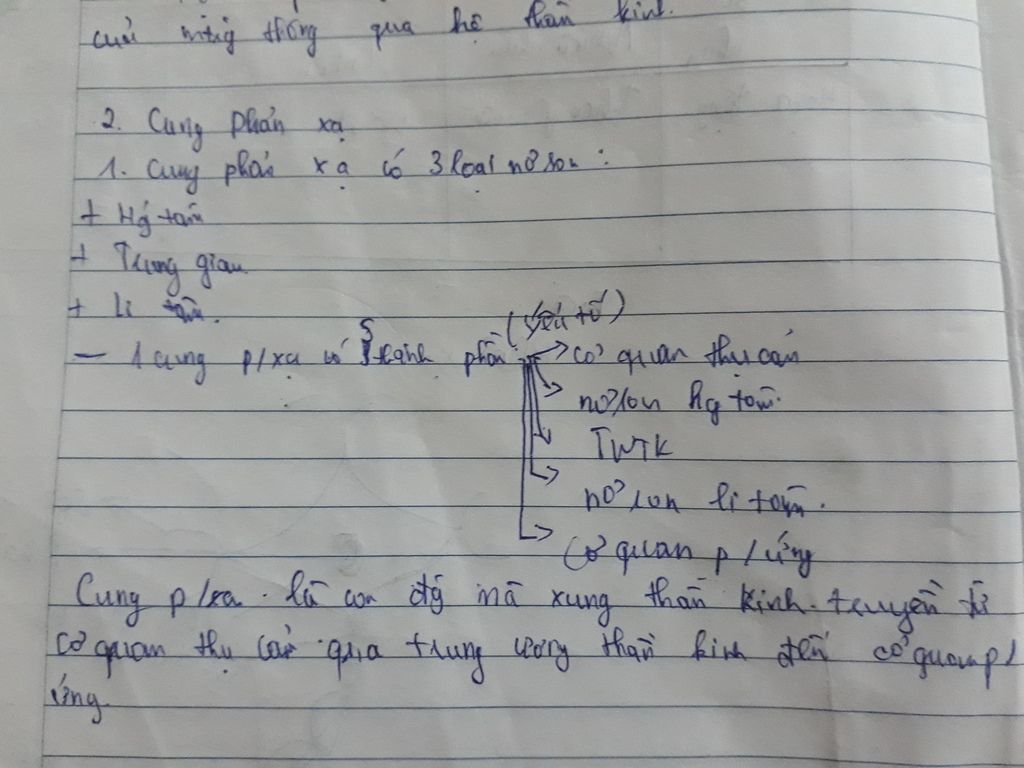 của mtrg thông qua hệ thần kinh.
2. Cung phản xạ
1. Cung phản xạ có 3 loại nơron :
+ Hg tâm
+ Trung gian
+ li tâm.
(yếu tố)
— 1 cung p/xạ có 5 thành phần : → cơ quan thụ cảm
nơron hg tâm.
TWTK
nơron li tâm.
Cơ quan p/ứng
Cung p/xạ là con đg mà xung thần kinh truyền từ
cơ quan thụ cảm qua trung ương thần kinh đến cơ quan p/
ứng.